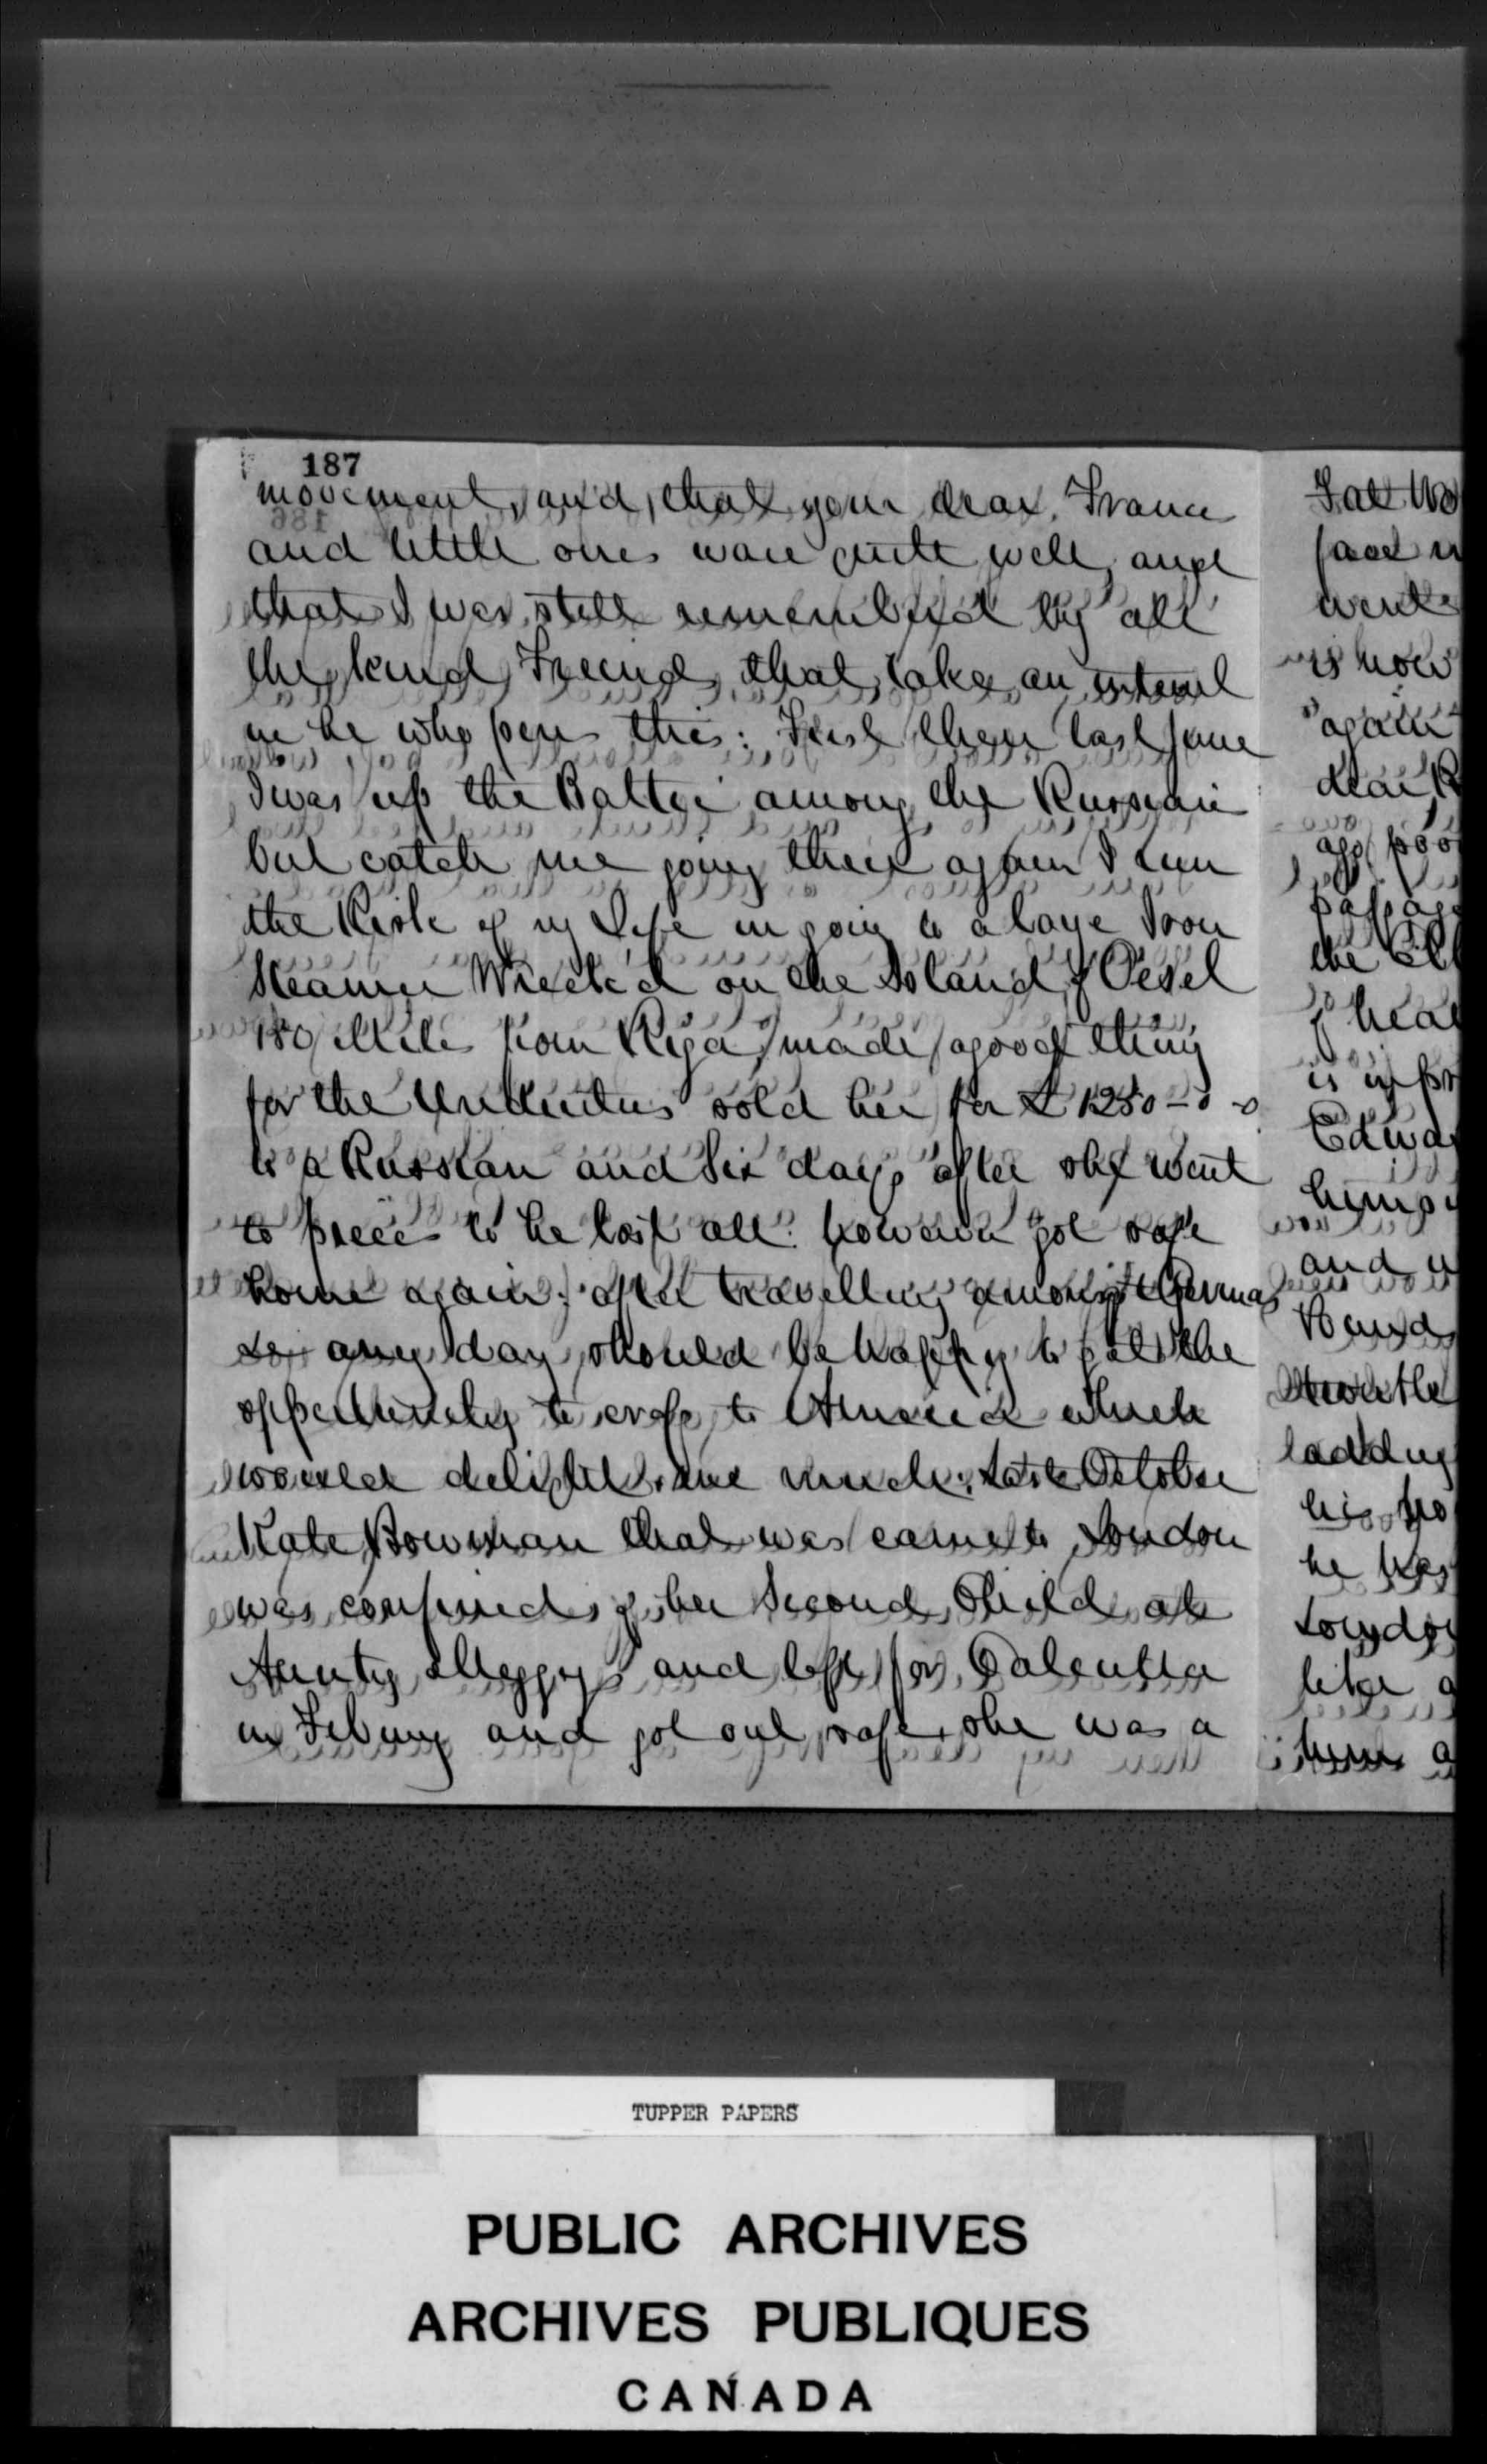 187
movement, and that your dear Frances
and little ones ware quite well, and
that I was still rememberd by all
the kind Freinds that takes an interest
in he who pens this: First then last June
I was up the Baltic among the Russians
but catch me going there again I run
the Risk of my Life in going to a large Iron
Steamer Wreck'd on the Island of Oesel
180 Mile from Riga, made a good thing
for the sold her for £ 1250-0-0
to a Russian and Six days after she went
to pieces so he lost all: however got safe
home again: after travelling amongst Germans
&c any day should be happy to get the
oppertunity to cross to America which
would delight me much: Last October
Kate Bowman that was came to London
was confined of her Second Child at
Aunty Meggy's and left for Calcutta
in and got out safe, she was a
Fat
face
went
is now
again
dear
ago poor
passage
the
hear
is in
Edwa
hims
and
Bound
ladding
his
he has
London
like a
him a
TUPPER PAPERS
PUBLIC ARCHIVES
ARCHIVES PUBLIQUES
CANADA